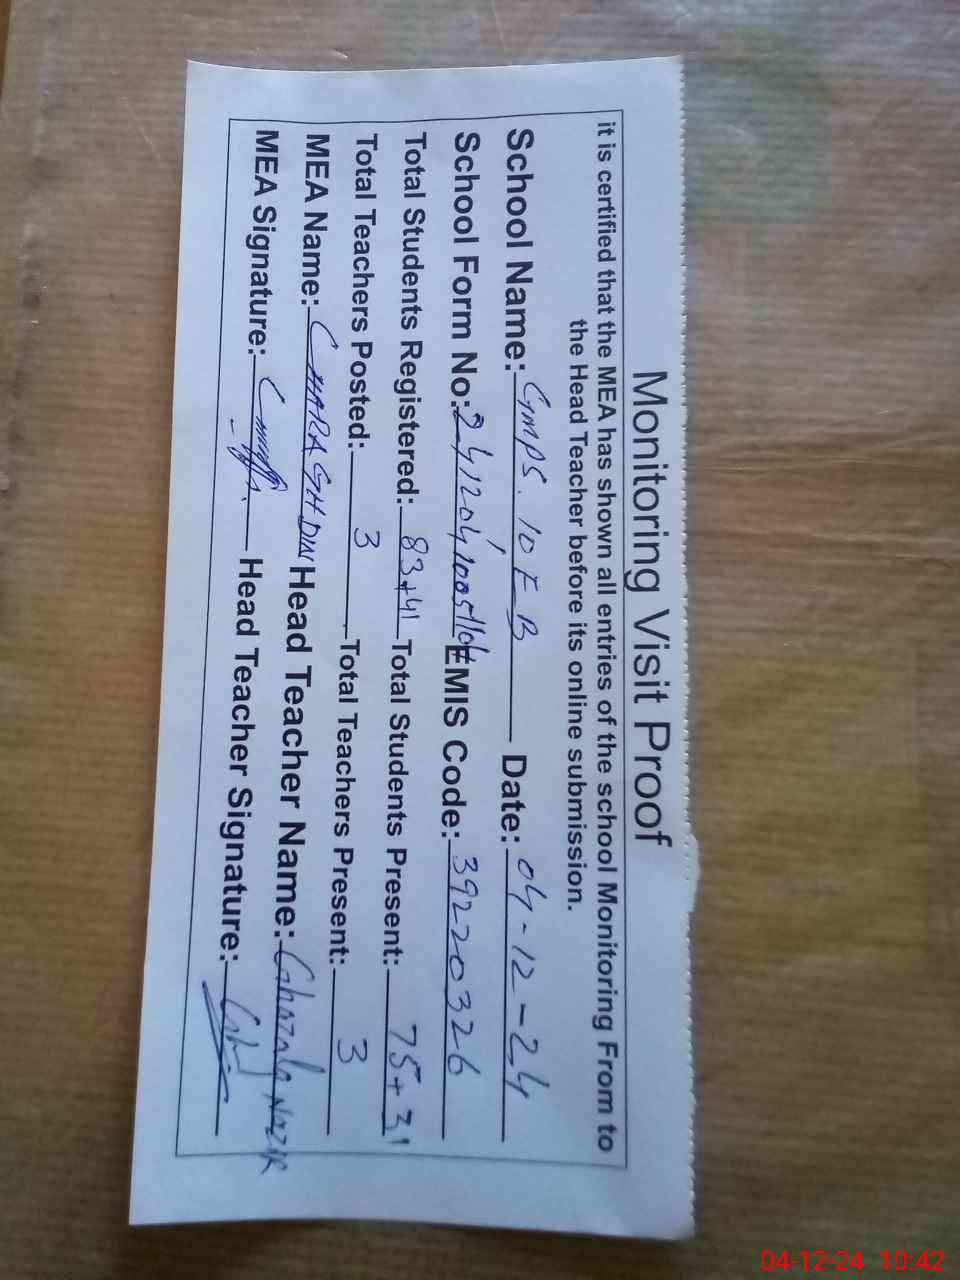 Monitoring Visit Proof
it is certified that the MEA has shown all entries of the school Monitoring From to
the Head Teacher before its online submission.
School Name: GMPS. 10 E B Date: 04-12-24
School Form No: EMIS Code: 39220326
Total Students Registered: 83+41 Total Students Present: 75+31
Total Teachers Posted: 3 Total Teachers Present: 3
MEA Name: CHARAGH DIN Head Teacher Name: Ghazala Nazir
MEA Signature: Head Teacher Signature:
04-12-24 10:42